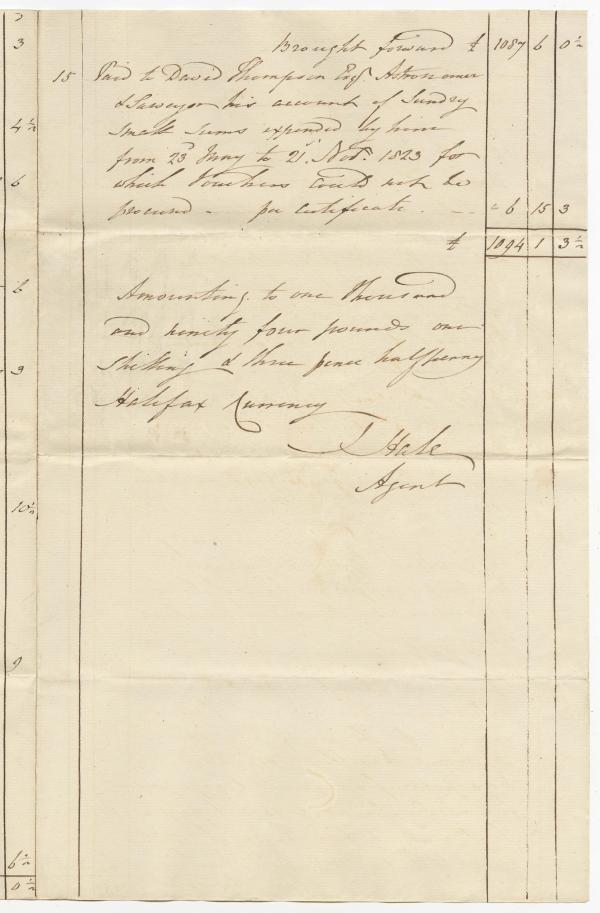 Brought forward £ 1087 6 0½
15 Paid to David Thompson Esqr. Astronomer
& Surveyor his account of Sundry
small sums expended by him
from 23d May to 21st. Novr. 1823 for
which Vouchers could not be
procured - per certificate - - - " 6 15 3
£ 1094 1 3½
Amounting to one thousand
and ninety four pounds one
shilling & three pence halfpenny
Halifax Currency
J Hale
Agent
3
4½
6
6
9
10½
9
6½
0½